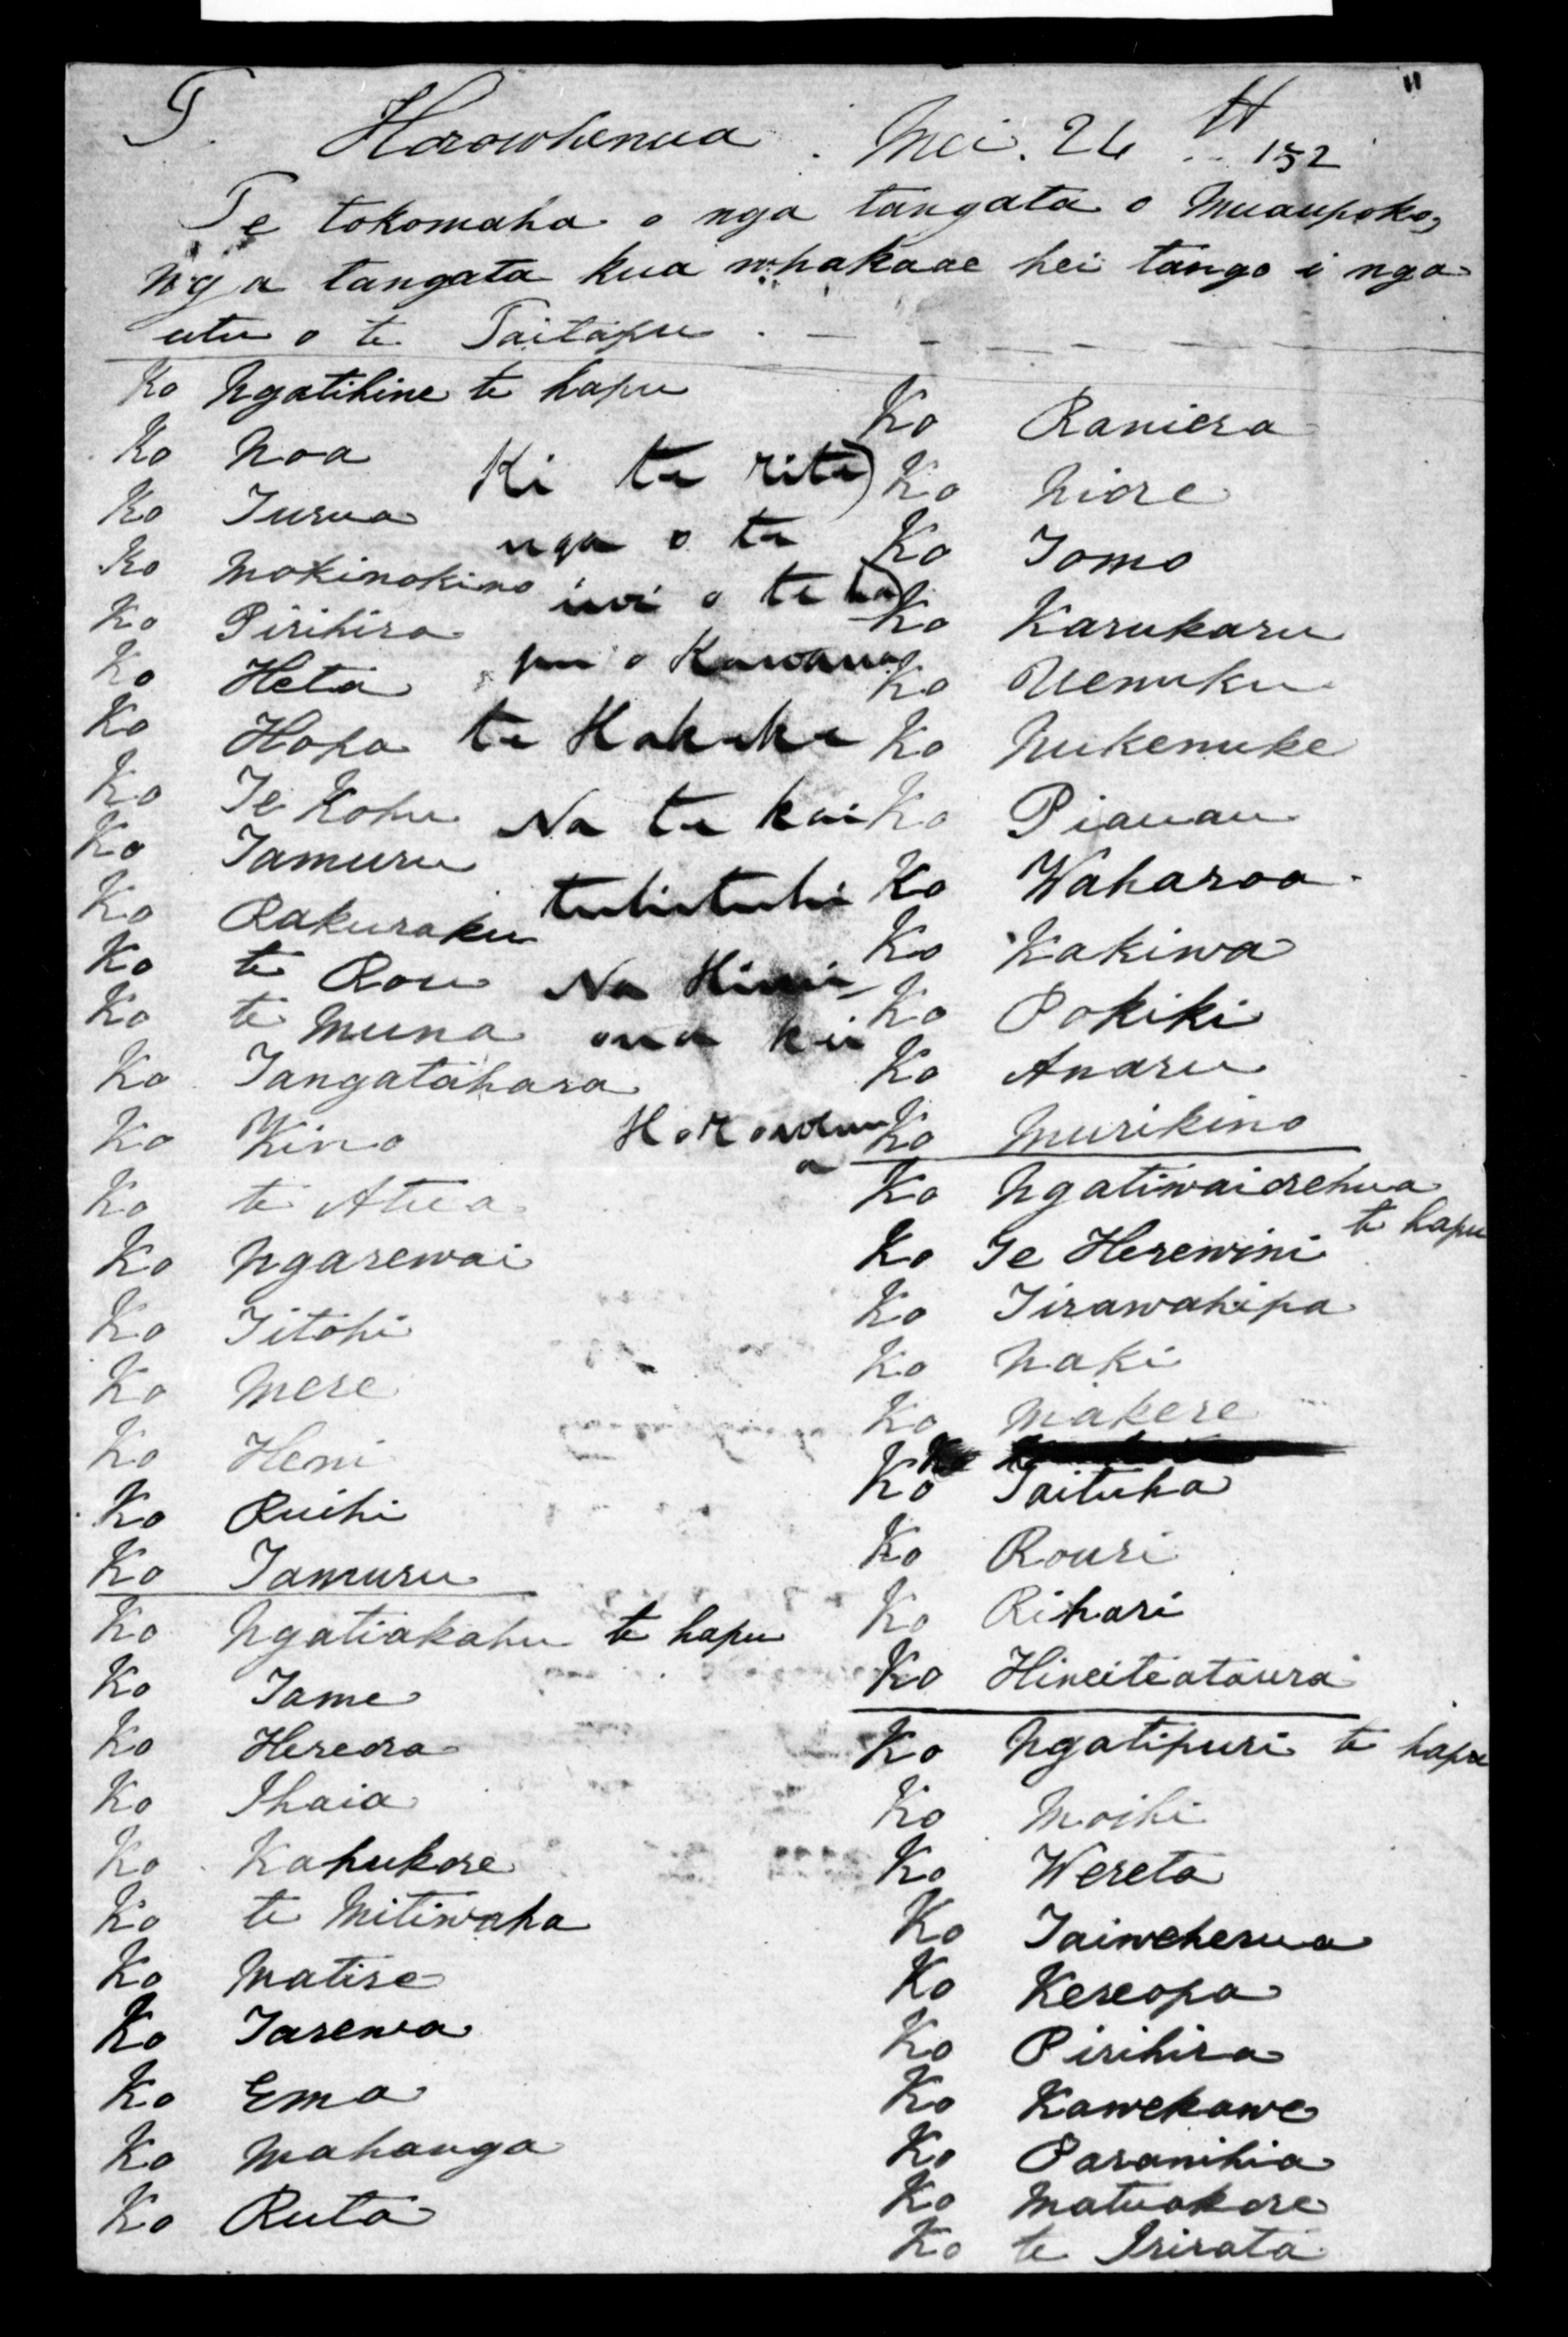 T. Horowhenua. Mei. 24 th 152
Te tokomaha o nga tangata o Muaupoko,
Nga tangata kua whakaae hei tango i nga
utu o te Taitapu. —
Ko Ngatihine te hapu
Ko Noa
Ko Turua
Ko Mokinokino
Ko Pirihira
Ko Heta
Ko Hopa
Ko Te Kohu
Ko Tamuru
Ko Rakuraku
Ko te Rou
Ko te Muna
Ko Tangatahara
Ko Kino
Ko te Atua
Ko Ngarewai
Ko Titohi
Ko Mere
Ko Heni
Ko Ruihi
Ko Tamuru
Ko Ngatiakahu te hapu
Ko Tame
Ko Hereora
Ko Ihaia
Ko Kahukore
Ko te Mitiwaha
Ko Matire
Ko Tarewa
Ko Ema
Ko Mahanga
Ko Ruta
Ki te rite
nga o te
iwi o te ha
pu o Kawana
te Hakeke
Na te kai
tuhituhi
Na
Ko Raniera
Ko Niore
Ko Tomo
Ko Karukaru
Ko Uenuku
Ko Nukenuke
Ko Pianau
Ko Waharoa
Ko Kakiwa
Ko Pokiki
Ko Anaru
Ko Murikino
Ko Ngatiwaiorehua
te hapu
Ko Te Herewini
Ko Tirawahipa
Ko Naki
Ko Makere
Ko Taituha
Ko Rouri
Ko Rihari
Ko Hineiteotaura
Ko Ngatipuri te hapu
Ko Moihi
Ko Wereta
Ko Taiweherua
Ko Kereopa
Ko Pirihira
Ko Kawekawe
Ko Paranihia
Ko Matuakore
Ko te Irirata